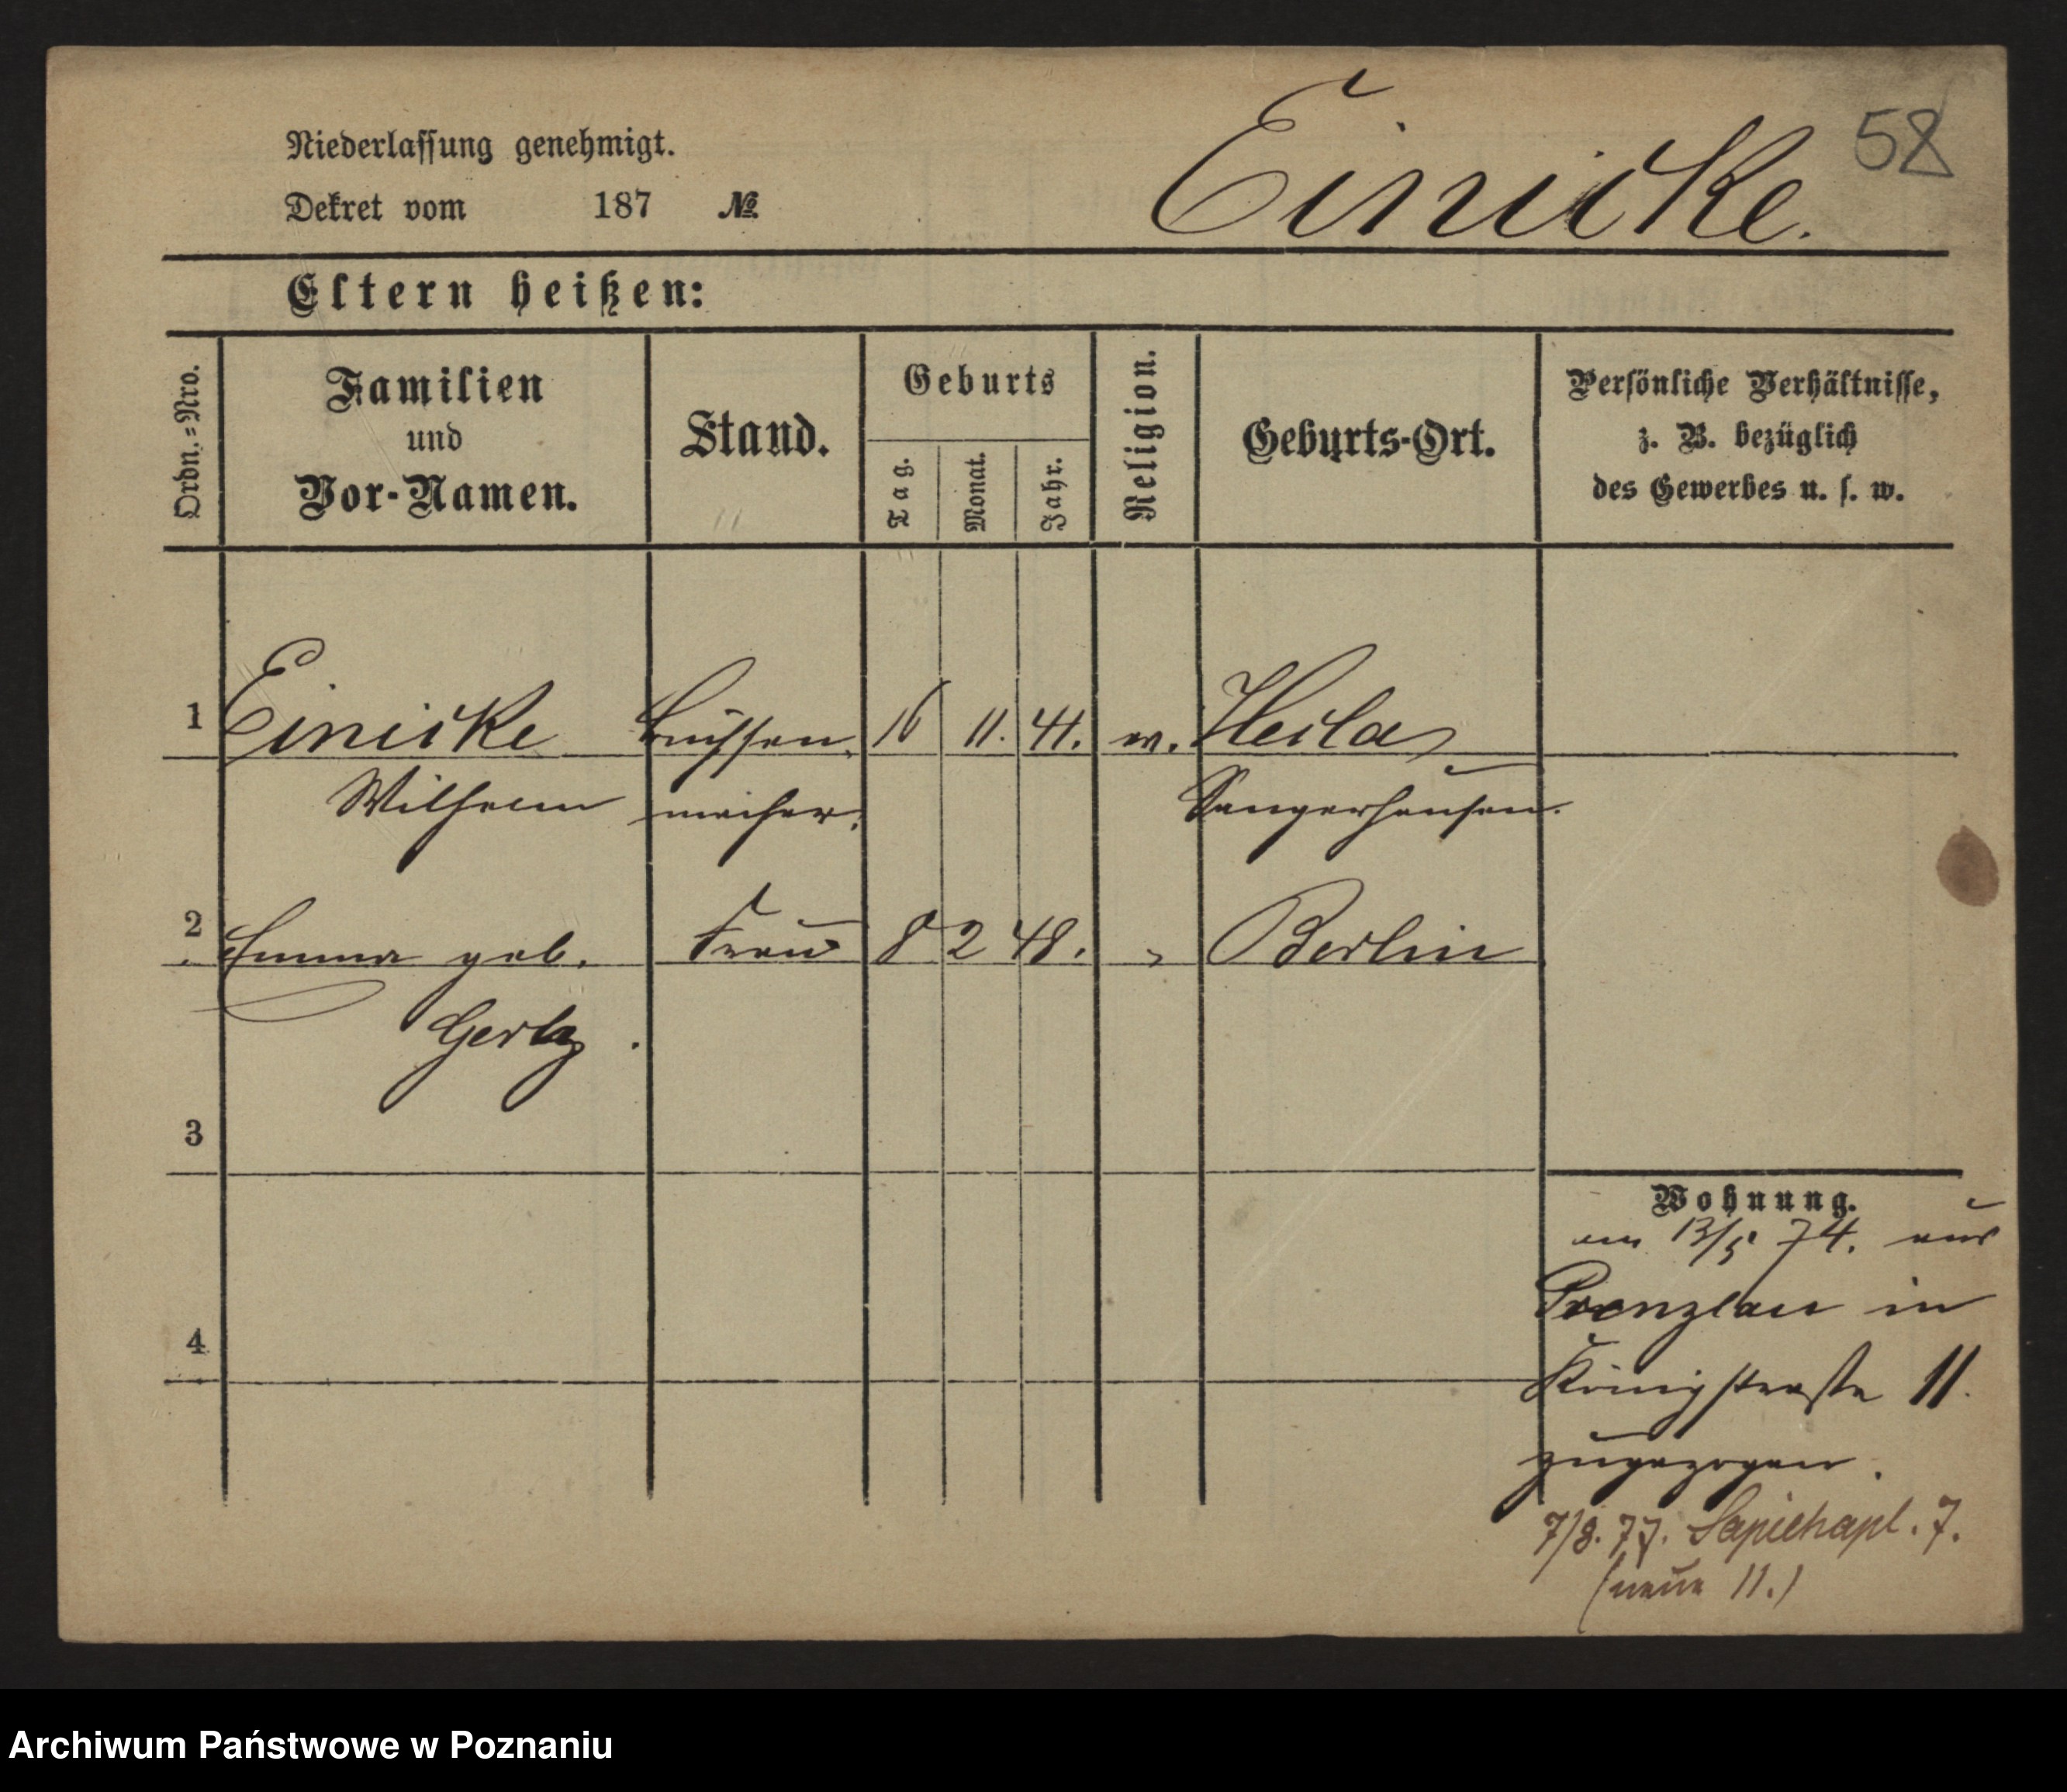 58
Einicke.
Niederlassung genehmigt.
Dekret vom 187 №
Eltern heißen:
Ordn.=Nro.
Familien
und
Vor-Namen.
Stand.
Geburts
Tag.
Monat.
Jahr.
Religion.
Geburts-Ort.
Persönliche Verhältnisse,
z. B. bezüglich
des Gewerbes u. s. w.
1 Einicke Büchsen 16 11. 41. ev.
Wilhelm macher. Sangerhausen.
2 Emma geb. Frau 8 2 48. " Berlin
3
4
Wohnung.
am 13/5 74. aus
Prenzlau in
Königstraße 11.
zugezogen.
7/8. 77. Sapiehapl. 7.
(neue 11.)
Archiwum Państwowe w Poznaniu